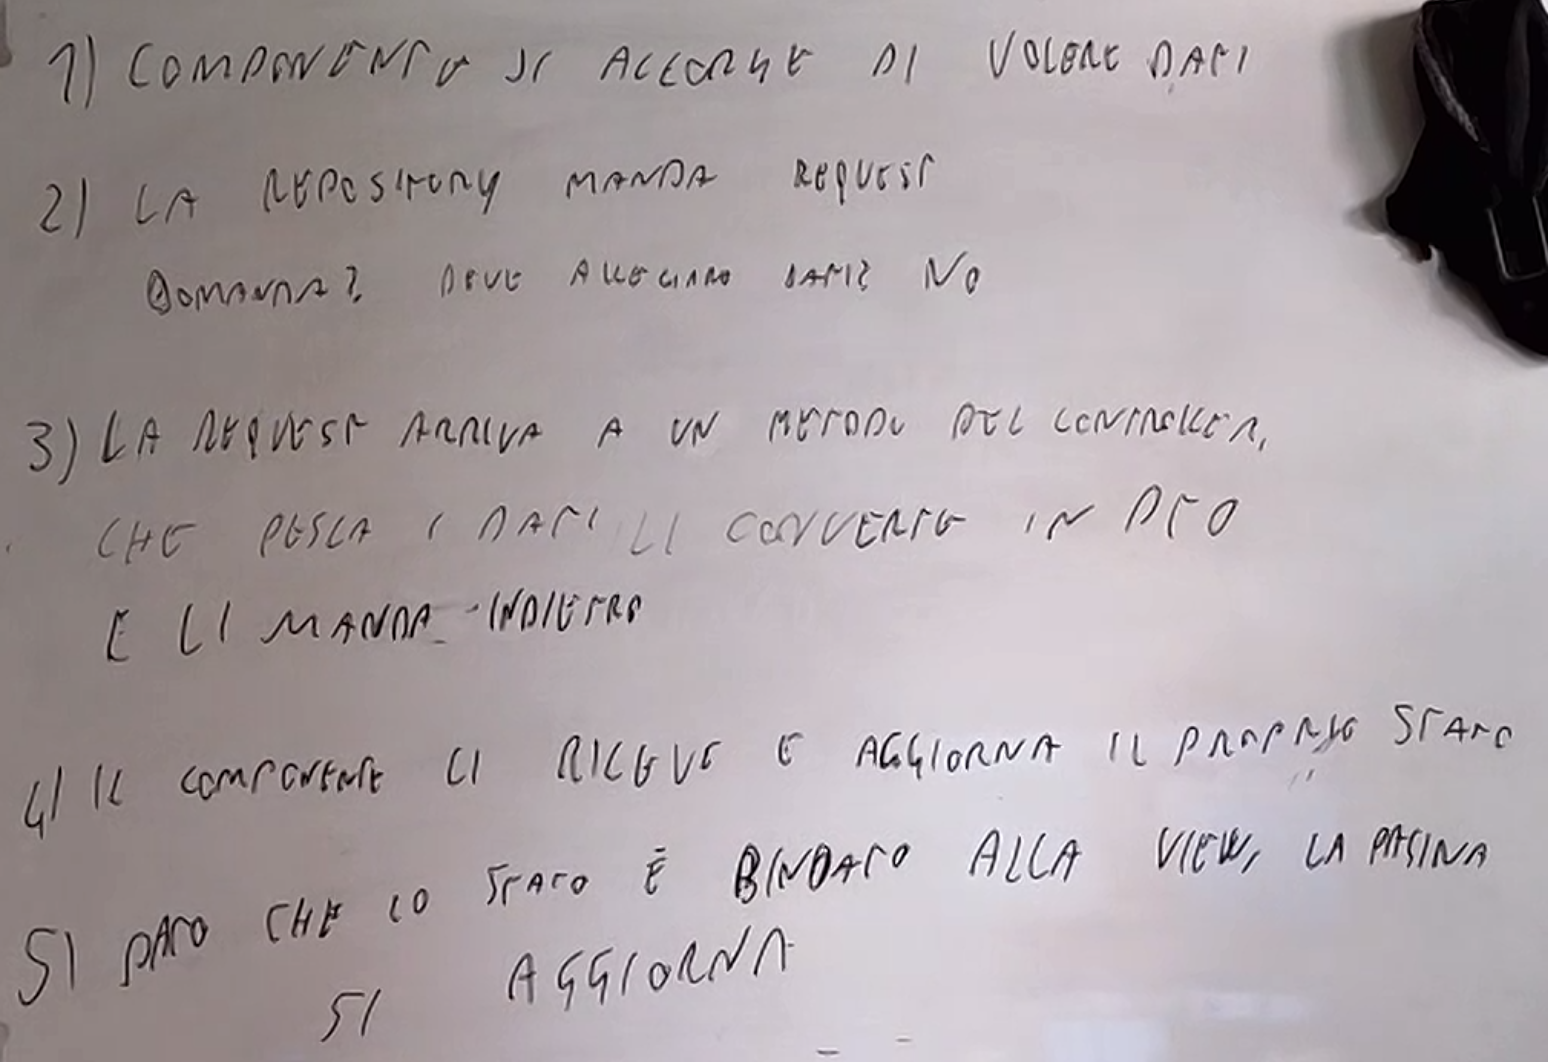 1) COMPONENTE SI ACCORGE DI VOLERE DATI
2) LA REPOSITORY MANDA REQUEST
DOMANDA? DEVE ALLEGARE DATI? NO
3) LA REQUEST ARRIVA A UN METODO DEL CONTROLLER,
CHE PESCA I DATI LI CONVERTE IN DTO
E LI MANDA INDIETRO
4) IL COMPONENTE LI RICEVE E AGGIORNA IL PROPRIO STATO
5) DATO CHE LO STATO È BINDATO ALLA VIEW, LA PAGINA
SI AGGIORNA